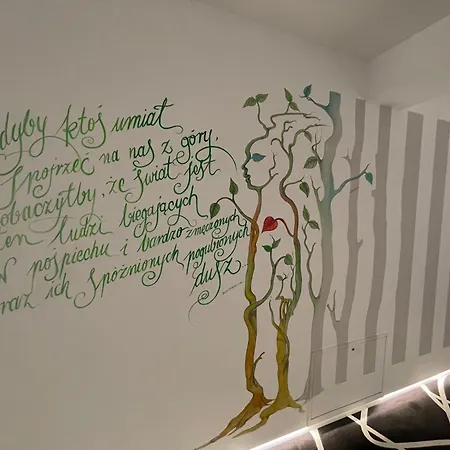 dyby ktoś umiał
spojrzeć na nas z góry,
obaczyłby, że świat jest
en ludzi biegających
w pośpiechu i bardzo zmęczonych
raz ich spóźnionych pogubionych
dusz